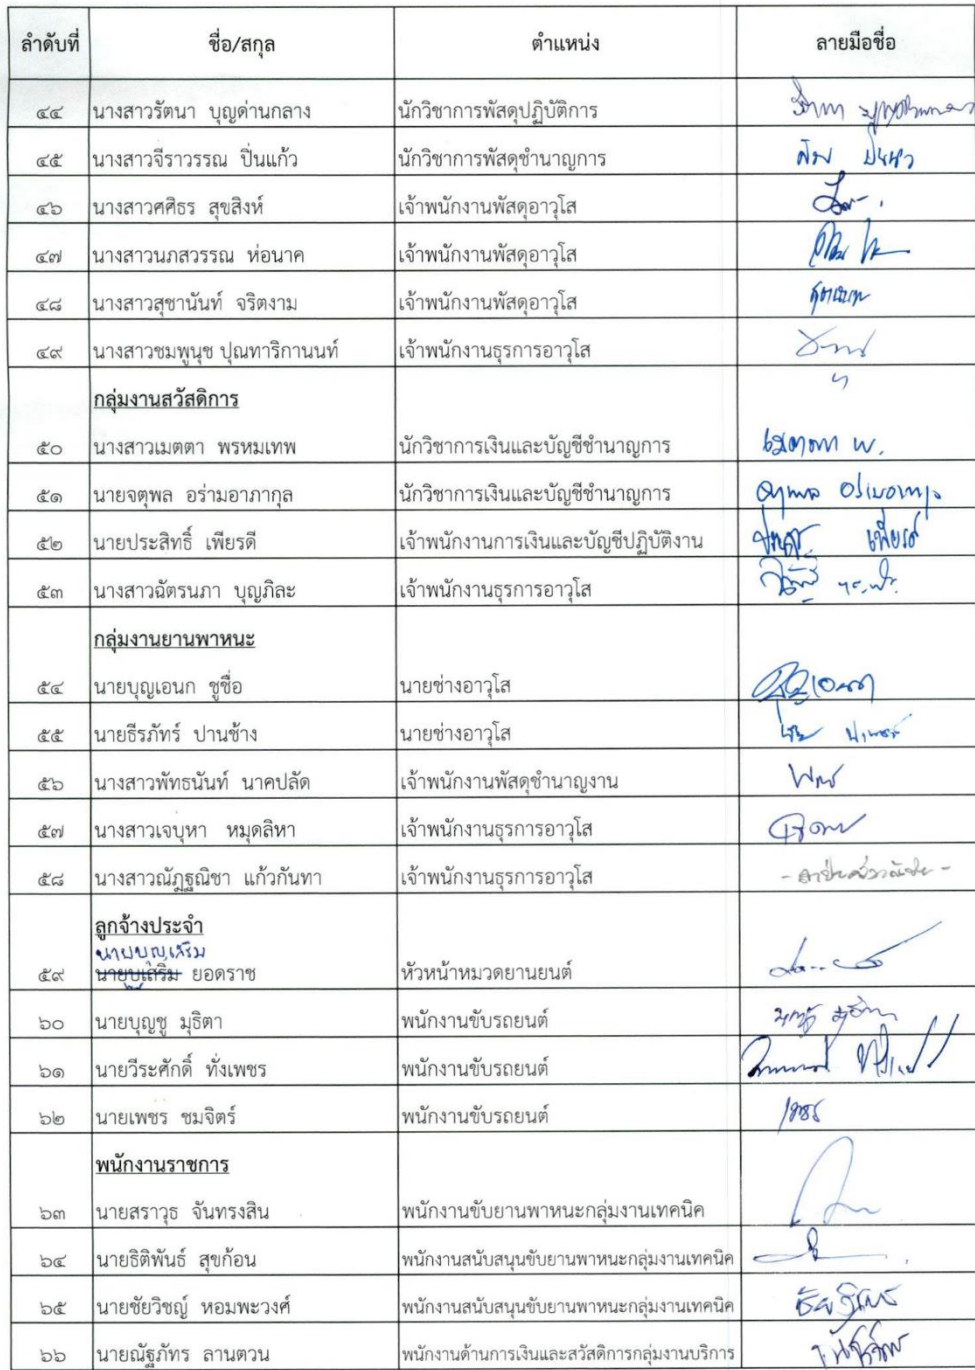 ลำดับที่ ชื่อ/สกุล ตำแหน่ง ลายมือชื่อ
๔๔ นางสาวรัตนา บุญด่านกลาง นักวิชาการพัสดุปฏิบัติการ
๔๕ นางสาวจีราวรรณ ปิ่นแก้ว นักวิชาการพัสดุชำนาญการ
๔๖ นางสาวศศิธร สุขสิงห์ เจ้าพนักงานพัสดุอาวุโส
๔๗ นางสาวนภสวรรณ ห่อนาค เจ้าพนักงานพัสดุอาวุโส
๔๘ นางสาวสุชานันท์ จริตงาม เจ้าพนักงานพัสดุอาวุโส
๔๙ นางสาวชมพูนุช ปุณฑาริกานนท์ เจ้าพนักงานธุรการอาวุโส
กลุ่มงานสวัสดิการ
๕๐ นางสาวเมตตา พรหมเทพ นักวิชาการเงินและบัญชีชำนาญการ เมตตา พ.
๕๑ นายจตุพล อร่ามอาภากุล นักวิชาการเงินและบัญชีชำนาญการ
๕๒ นายประสิทธิ์ เพียรดี เจ้าพนักงานการเงินและบัญชีปฏิบัติงาน เพียรดี
๕๓ นางสาวฉัตรนภา บุญภิละ เจ้าพนักงานธุรการอาวุโส
กลุ่มงานยานพาหนะ
๕๔ นายบุญเอนก ชูชื่อ นายช่างอาวุโส
๕๕ นายธีรภัทร์ ปานช้าง นายช่างอาวุโส
๕๖ นางสาวพัทธนันท์ นาคปลัด เจ้าพนักงานพัสดุชำนาญงาน
๕๗ นางสาวเจบุหา หมุดลิหา เจ้าพนักงานธุรการอาวุโส
๕๘ นางสาวณัฏฐณิชา แก้วกันทา เจ้าพนักงานธุรการอาวุโส
ลูกจ้างประจำ
นายบุญเสริม
๕๙ นายบูเสริม ยอดราช หัวหน้าหมวดยานยนต์
๖๐ นายบุญชู มุธิตา พนักงานขับรถยนต์
๖๑ นายวีระศักดิ์ ทั่งเพชร พนักงานขับรถยนต์
๖๒ นายเพชร ชมจิตร์ พนักงานขับรถยนต์ เพชร
พนักงานราชการ
๖๓ นายสราวุธ จันทรงสิน พนักงานขับยานพาหนะกลุ่มงานเทคนิค
๖๔ นายธิติพันธ์ สุขก้อน พนักงานสนับสนุนขับยานพาหนะกลุ่มงานเทคนิค
๖๕ นายชัยวิชญ์ หอมพะวงศ์ พนักงานสนับสนุนขับยานพาหนะกลุ่มงานเทคนิค
๖๖ นายณัฐภัทร ลานตวน พนักงานด้านการเงินและสวัสดิการกลุ่มงานบริการ